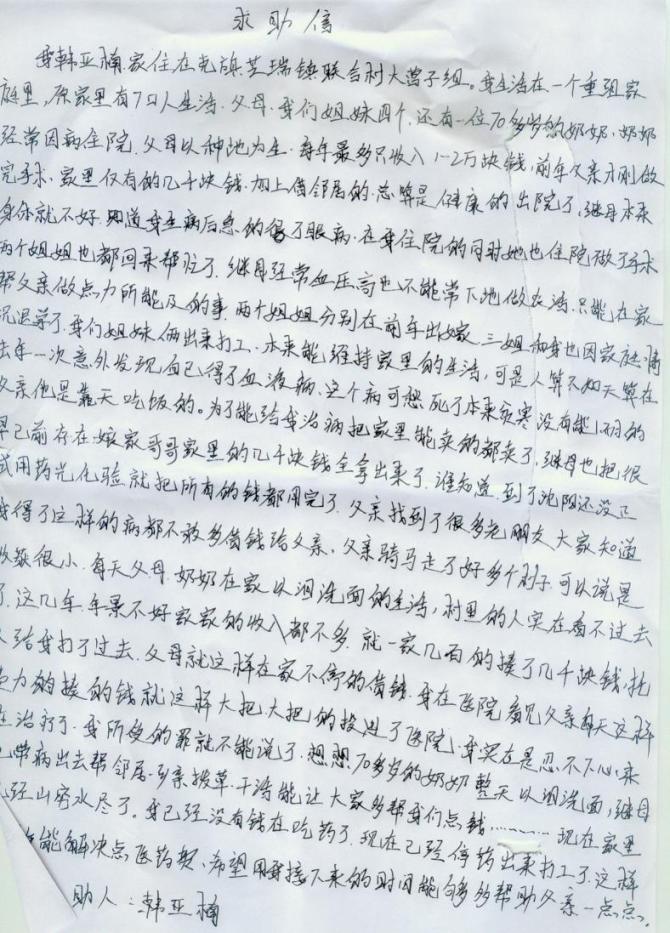 求助信
我韩亚楠.家住在克旗芝瑞镇联合村大营子组。我生活在一个重组家
庭里，原家里有7口人生活.父母.我们姐妹四个.还有一位70多岁的奶奶.奶奶
经常因病住院.父母以种地为生.每年最多只收入1-2万块钱.前年父亲才刚做
完手术.家里仅有的几千块钱.加上借邻居的.总算是健康的出院了.继母本来
身体就不好.知道我生病后急的得了眼病.在我住院的同时她也住院做了手术
两个姐姐也都回来帮忙了.继母经常血压高也不能常下地做农活.只能在家
帮父亲做点力所能及的事.两个姐姐分别在前年出嫁.三姐和我也因家庭情
况退学了.我们姐妹俩出来打工.本来能维持家里的生活，可是人算不如天算在
去年一次意外发现自己得了血液病.这个病可愁死了本来贫寒没有能力的
父亲他是靠天吃饭的。为了能给我治病把家里能卖的都卖了.继母也把很
早已前存在娘家哥哥家里的几千块钱全拿出来了.谁知道.到了沈阳还没正
试用药光化验就把所有的钱都用完了.父亲找到了很多老朋友大家知道
我得了这样的病都不敢多借钱给父亲.父亲骑马走了好多个村子可以说是
收获很小.每天父母.奶奶在家以泪洗面的生活，村里的人实在看不过去
了.这几年.年景不好家家的收入都不多.就一家几百的揍了几千块钱，托
人给我打了过去.父母就这样在家不停的借钱.我在医院看见父亲每天这样
力的揍的钱就这样大把大把的投进了医院.我实在是忍不下心来
在治疗了.我所受的罪就不能说了.想想70多岁的奶奶整天以泪洗面，继母
带病出去帮邻居.乡亲拔草.干活能让大家多帮我们点钱………现在家里
已经山穷水尽了。我已经没有钱在吃药了.现在已经停药出来打工了.这样
能解决点医药费.希望用我接下来的时间能够多多帮助父亲一点点.
助人：韩亚楠